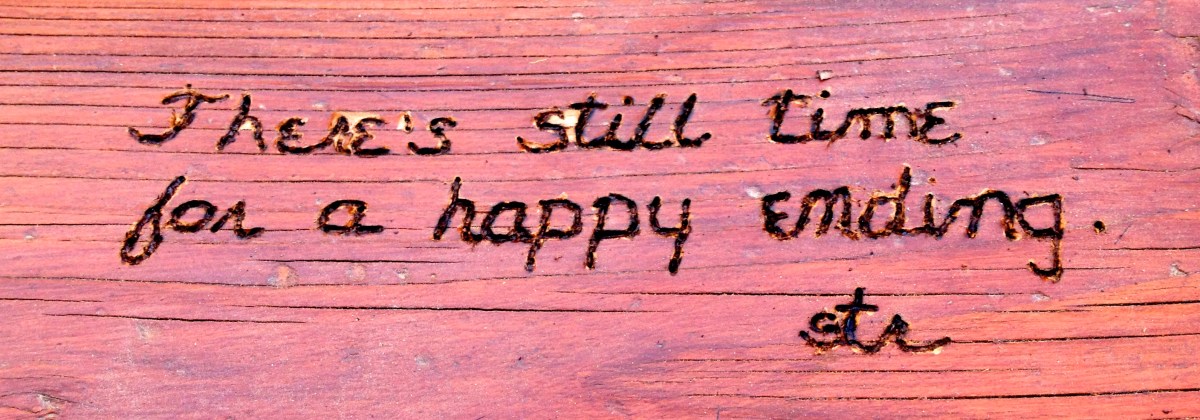 There's still time
for a happy ending.
str